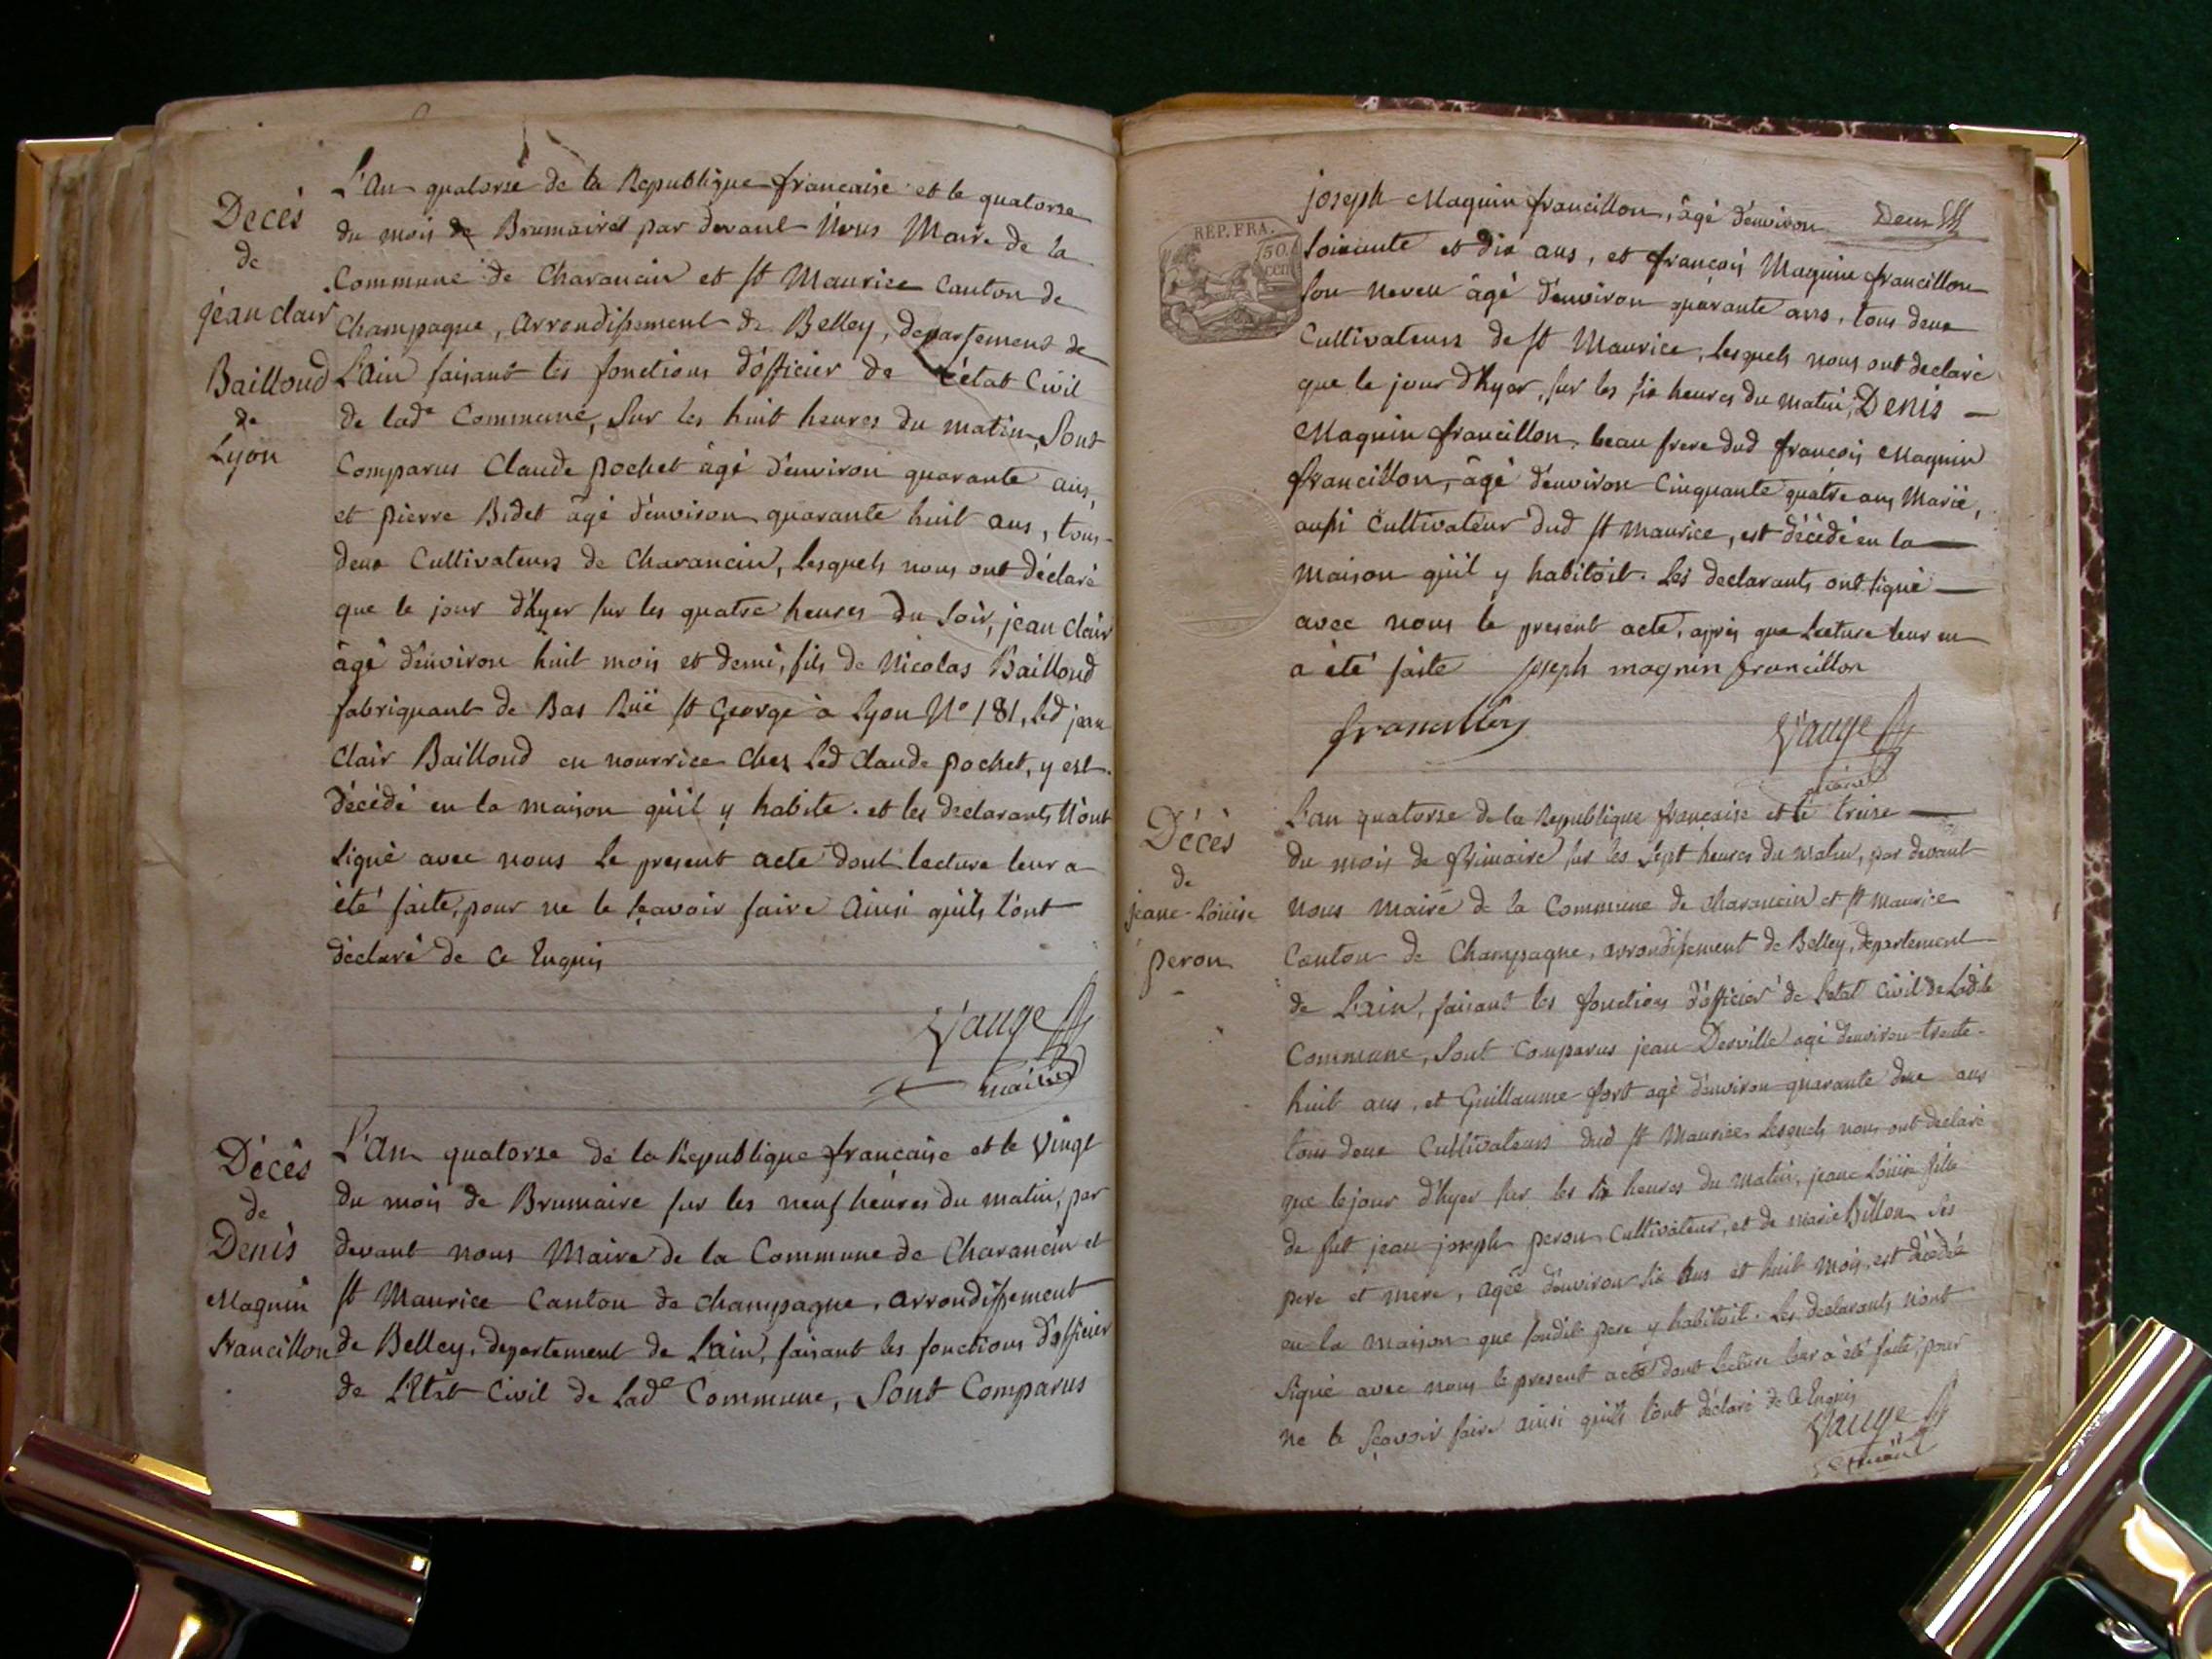 Decès
de
jean clair
Bailloud
de
Lyon
L'An quatorse de la Republique francaise et le quatorse
du mois de Brumaire par devant Nous Maire de la
Commune de Charancin et St Maurice Canton de
Champagne, Arrondissement de Belley, departement de
L'Ain faisant les fonctions d'officier de l'état Civil
de lade Commune, Sur les huit heures du matin, Sont
Comparus Claude pochet âgé d'environ quarante ans,
et pierre Bidet âgé d'environ quarante huit ans, tous
deux Cultivateurs de Charancin, Lesquels nous ont déclaré
que le jour d'hyer sur les quatre heures du Soir, jean clair
âgé d'environ huit mois et demi, fils de Nicolas Bailloud
fabriquant de Bas Ruë St George à Lyon N° 181, Led jean
Clair Bailloud en nourrice chez Led Claude pochet, y est
décédé en la maison qu'il y habite. et les declarants N'ont
Signé avec nous Le present acte dont lecture leur a
été faite, pour ne le sçavoir faire Ainsi qu'ils l'ont
déclaré de Ce Enquis
Vauge
maire
Décès
de
Denis
Magnin
francillon
L'An quatorse de la Republique francaise et le Vingt
du mois de Brumaire sur les neuf heures du matin, par
devant nous Maire de la Commune de Charancin et
St Maurice Canton de Champagne, arrondissement
de Belley, departement de L'ain, faisant les fonctions d'officier
de L'Etat Civil de Lade Commune, Sont Comparus
REP. FRA.
50
cen
joseph Magnin francillon, âgé d'environ
Deux
Soixante et dix ans, et françois Magnin francillon
Son neveu âgé d'environ quarante ans, tous deux
Cultivateurs de St Maurice, Lesquels nous ont declaré
que le jour d'hyer, sur les six heures du matin, Denis
Magnin francillon, beau frere dud françois Magnin
francillon, âgé d'environ Cinquante quatre ans, Marié,
aussi Cultivateur dud St Maurice, est décédé en la
maison qu'il y habitoit. Les declarants ont signé
avec nous le present acte, après que Lecture leur en
a été faite Joseph magnin francillon
francillon
Vauge
maire
Décès
de
jeane-Loüise
peron
L'an quatorse de la Republique française et le treise
du mois de frimaire sur les Sept heures du matin, par devant
nous maire de la Commune de Charancin et St Maurice
Canton de Champagne, arrondissement de Belley, departement
de L'ain, faisant les fonctions d'officier de L'etat Civil de Ladite
Commune, Sont Comparus jean Derville agé d'environ trente
huit ans, et Guillaume fort agé d'environ quarante deux ans
tous deux Cultivateurs dud St Maurice, Lesquels nous ont declaré
que le jour d'hyer sur les six heures du matin, jeane Loüise fille
de fut jean joseph peron Cultivateur, et de marie Billon Ses
pere et mere, agée d'environ six ans et huit mois, est décédée
en la maison que sondit pere y habitoit. Les declarants N'ont
Signé avec nous le present acte dont Lecture leur a été faite, pour
ne le Sçavoir faire ainsi qu'ils l'ont déclaré de Ce Enquis
Vauge
maire